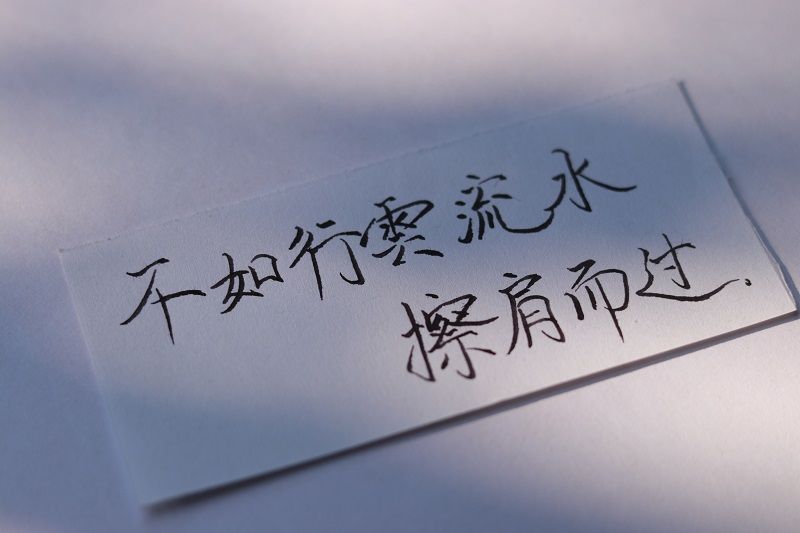 不如行雲流水
擦肩而过.